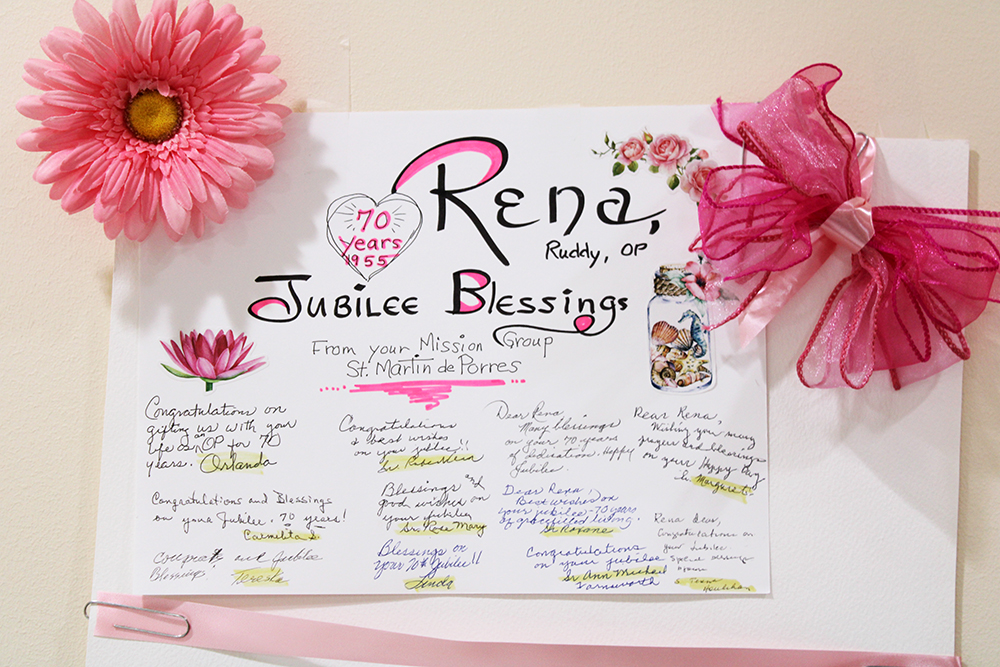 Rena,
Ruddy, OP
70
Years
1955
Jubilee Blessings
From your Mission Group
St. Martin de Porres
Congratulations on
gifting us with your
life as an OP for 70
years. Orlanda
Congratulations
& best wishes
on your jubilee!!
Sr.
Dear Rena
Many blessings
on your 70 years
of dedication. Happy
Jubilee.
Dear Rena,
Wishing you many
prayers and blessings
on your Happy Day
Sr. Margaret
Congratulations and Blessings
on your Jubilee. 70 years!
Carmelita S.
Blessings and
good wishes on
your jubilee
Sr. Rose Mary
Dear Rena!
Best wishes on
your jubilee - 70 years
of gracefilled living.
Sr Roxane
Rena dear,
Congratulations on
your Jubilee
Special
and Jubilee
Blessings. Teresa
Blessings on
your 70th Jubilee!!
Linda
Congratulations
on your jubilee
Sr Ann Michael
Farnsworth